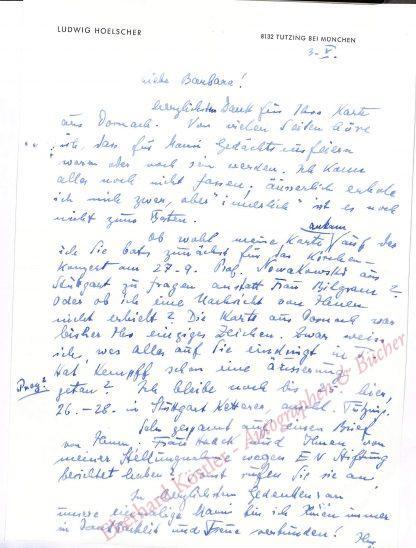 LUDWIG HOELSCHER
8132 TUTZING BEI MÜNCHEN
3. V.
Liebe Barbara!
herzlichsten Dank für Ihre Karte
aus Dornach. Von vielen Seiten höre
ich, dass für Mami Gedächtnisfeiern
waren oder noch sein werden. Ich kann
alles noch nicht fassen; äusserlich erhole
ich mich zwar, aber "innerlich" ist es noch
nicht zum Besten.
Ob wohl meine Karte ankam, auf der
ich Sie bat, zunächst für das Kirchen-
konzert am 27.9. Prof. Nowakowski aus
Stuttgart zu fragen anstatt Frau Bilgram?
Oder ob ich eine Nachricht von Ihnen
nicht erhielt? Die Karte aus Dornach war
bisher Ihr einziges Zeichen. Zwar weiss
ich, was alles auf Sie eindringt
Hat Kempff schon eine Äusserung
Prog? getan? Ich bleibe noch bis hier,
26.-28. in Stuttgart Tutzing.
Bin gespannt auf einen Brief
von Ihnen. Frau und Ihnen von
meiner Stellungnahme wegen EN Stiftung
berichtet haben? Sonst rufen Sie sie an.
In herzlichstem Gedenken an
unsere einmalige Mami bin ich Ihnen immer
in Dankbarkeit und Treue verbunden! Ihr
Eberhard Köstler - Autographen & Bücher